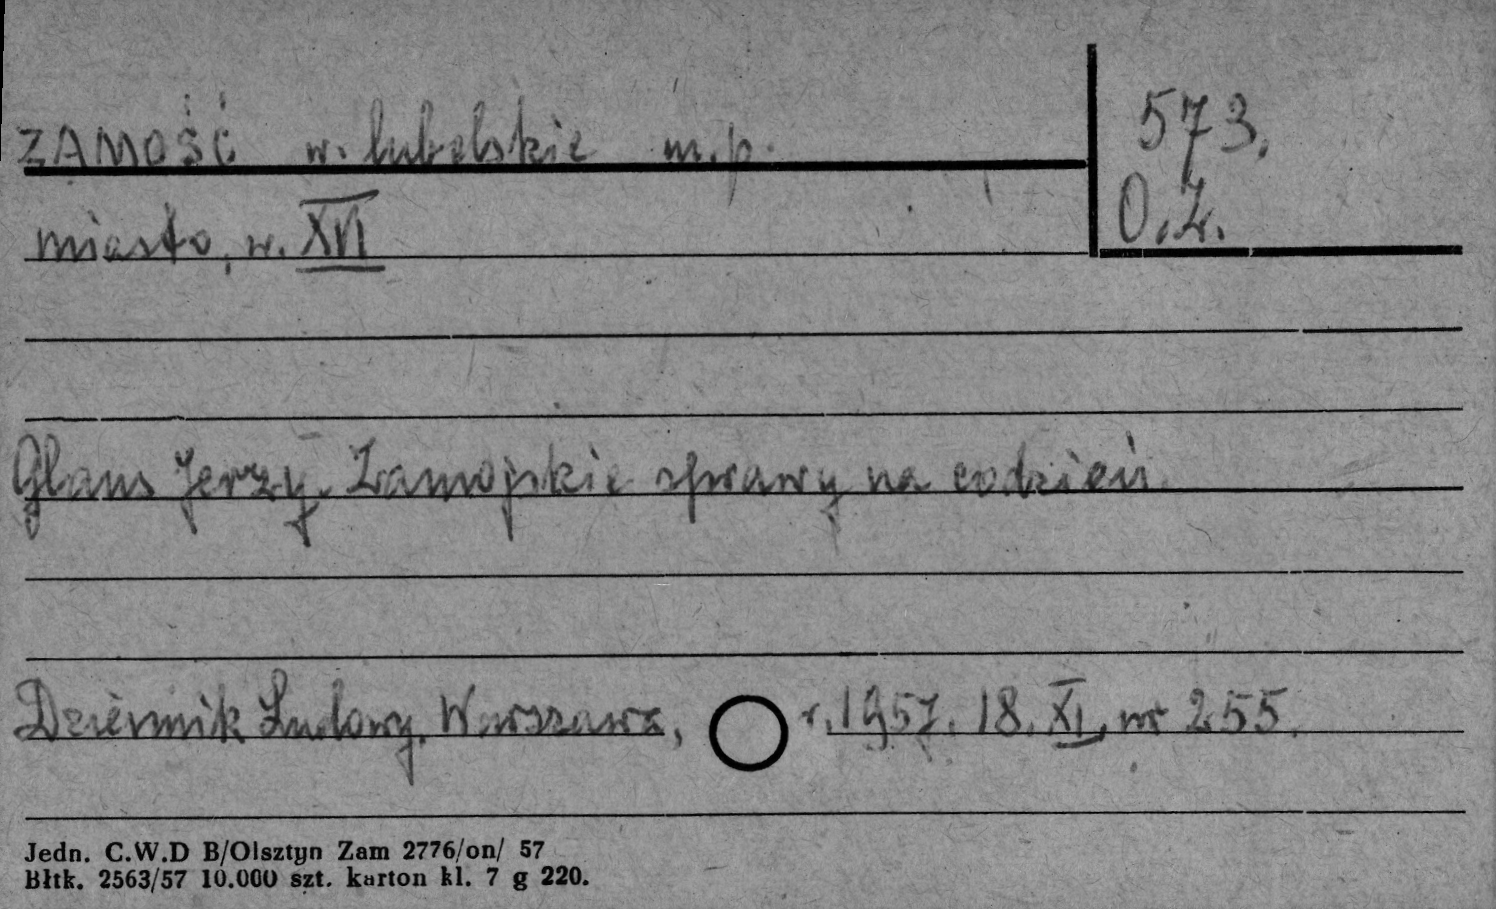 ZAMOŚĆ w. lubelskie m.p.
573.
O.Z.
miasto, w. XVI
Glans Jerzy. Zamojskie sprawy na codzień
Dziennik Ludowy. Warszawa, r. 1957. 18. XI, nr 255.
Jedn. C.W.D B/Olsztyn Zam 2776/on/ 57
Błtk. 2563/57 10.000 szt. karton kl. 7 g 220.